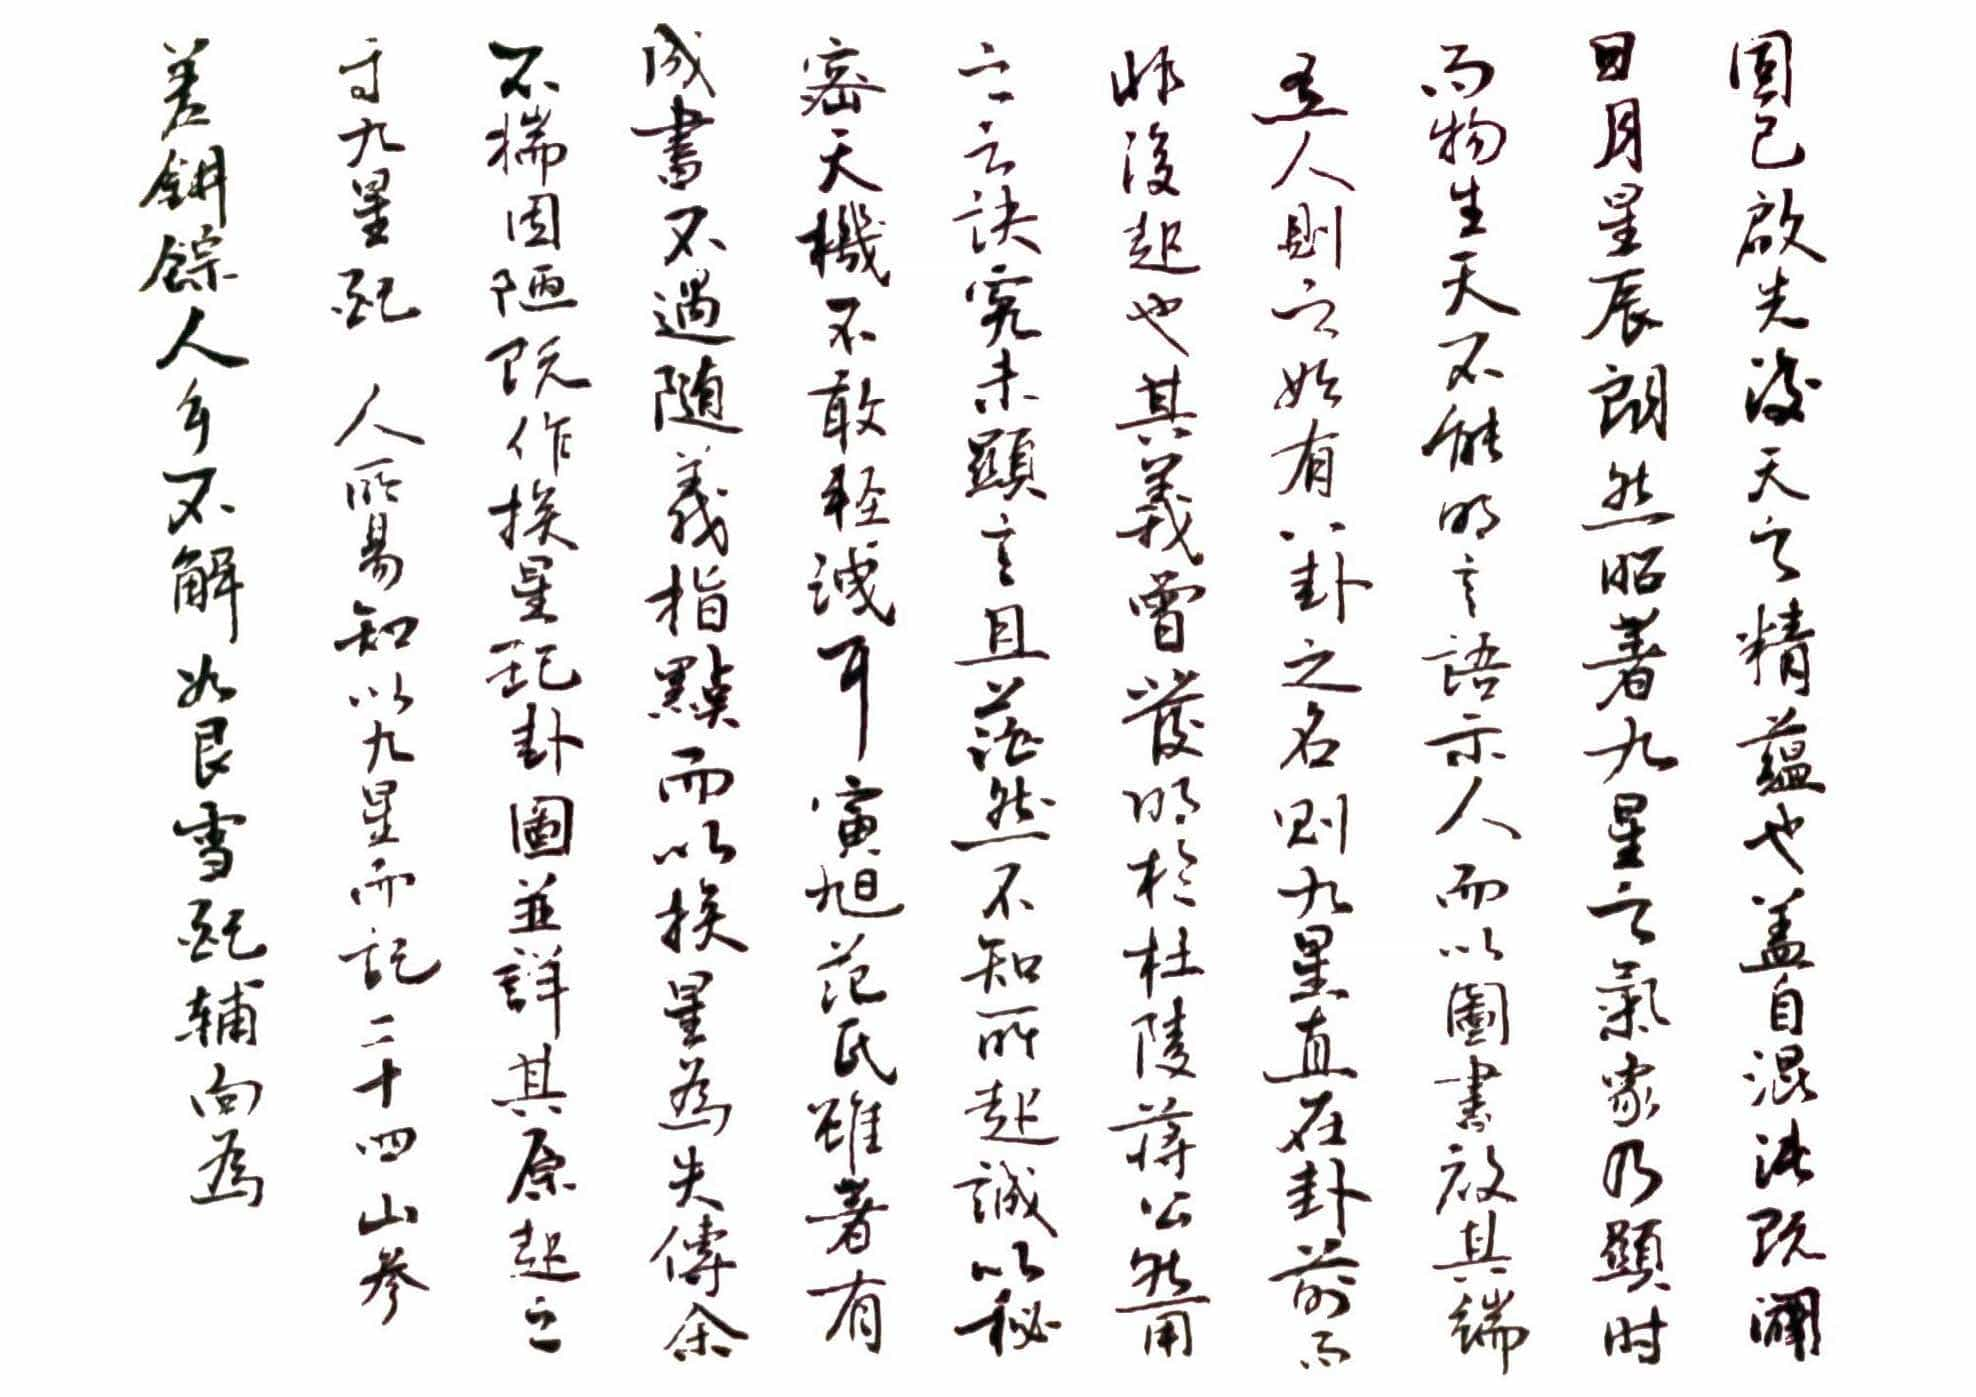 固已啟先後天之精蘊也蓋自混沌既瀾
日月星辰朗然昭著九星之氣象乃顯时
而物生天不能明言語示人而以圖書啟其端
聖人則之始有八卦之名則九星直在卦前而
非後起也其義曾發明於杜陵蒋公然用
之之訣究未顯言且茫然不知所起誠以秘
密天機不敢輕洩耳寅旭范氏雖著有
成書不過隨義指點而以挨星為失傳余
不揣固陋既作挨星配卦圖並詳其原起之
于九星配 人所易知以九星而記二十四山參
差錯綜人多不解如艮雪配輔向為